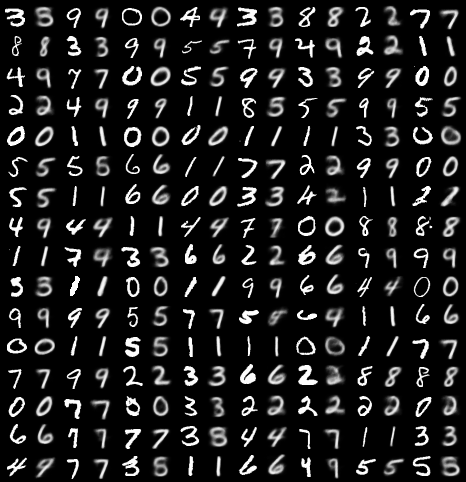 3 3 9 9 0 0 4 4 3 3 8 8 2 2 7 7
8 8 3 3 9 9 5 5 7 9 4 9 2 2 1 1
4 9 7 7 0 0 5 5 9 9 3 3 9 9 0 0
2 2 4 9 9 9 1 1 8 5 5 5 9 9 5 5
0 0 1 1 0 0 0 0 1 1 1 1 3 3 0 0
5 5 5 5 6 6 1 1 7 7 2 2 9 9 0 0
5 5 1 1 6 6 0 0 3 3 4 2 1 1 2 2
4 9 4 4 1 1 4 4 7 7 0 0 8 8 8 8
1 1 7 9 3 3 6 6 2 2 6 6 9 9 9 9
3 3 1 1 0 0 1 1 9 9 6 6 4 4 0 0
9 9 9 9 5 5 7 7 5 6 4 1 1 6 6
0 0 1 1 5 5 1 1 1 1 0 0 1 1 7 7
7 7 9 9 2 2 3 3 6 6 2 2 8 8 8 8
0 0 7 7 0 0 3 3 2 2 2 2 2 2 0 2
6 6 7 7 7 7 3 8 4 4 7 7 1 1 3 3
4 9 7 7 3 5 1 1 6 6 4 9 5 5 5 5